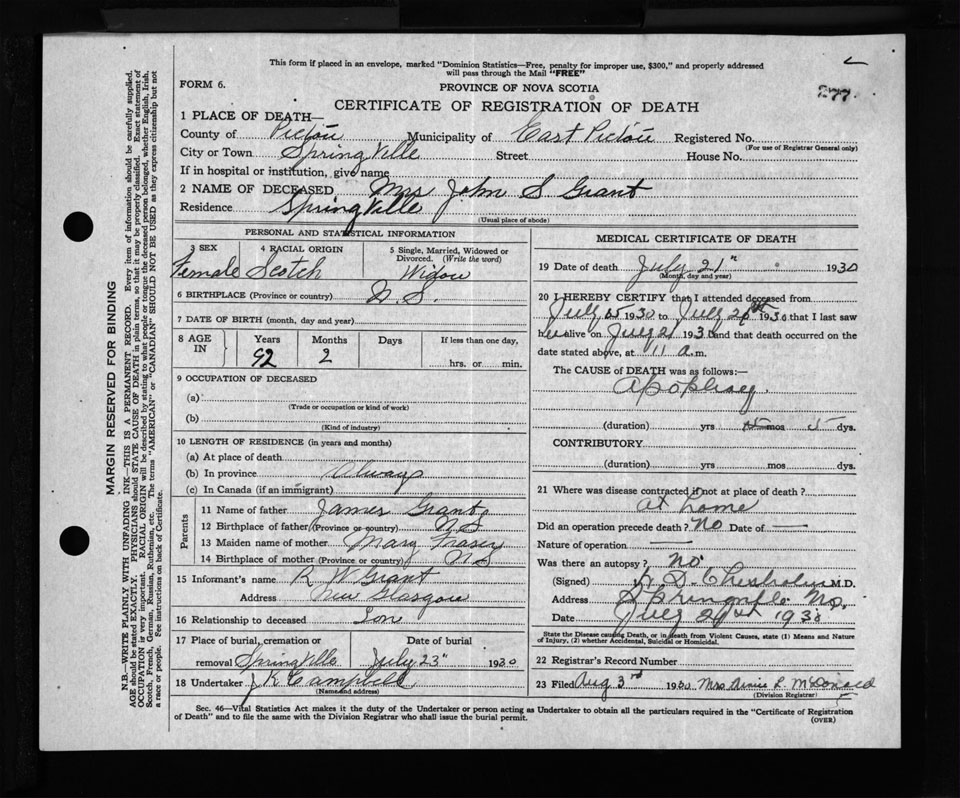 This form if placed in an envelope, marked "Dominion Statistics—Free, penalty for improper use, $300," and properly addressed
will pass through the Mail "FREE"
277
FORM 6.
PROVINCE OF NOVA SCOTIA
CERTIFICATE OF REGISTRATION OF DEATH
1 PLACE OF DEATH—
County of Pictou Municipality of East Pictou Registered No.
(For use of Registrar General only)
City or Town Spring Ville Street House No.
If in hospital or institution, give name
2 NAME OF DECEASED Mrs John S Grant
Residence Spring Ville
(Usual place of abode)
PERSONAL AND STATISTICAL INFORMATION
3 SEX
Female
4 RACIAL ORIGIN
Scotch
5 Single, Married, Widowed or
Divorced. (Write the word)
Widow
6 BIRTHPLACE (Province or country) N.S.
7 DATE OF BIRTH (month, day and year)
8 AGE
IN
Years
92
Months
2
Days
If less than one day,
hrs. or min.
9 OCCUPATION OF DECEASED
(a)
(Trade or occupation or kind of work)
(b)
(Kind of industry)
10 LENGTH OF RESIDENCE (in years and months)
(a) At place of death
(b) In province Always
(c) In Canada (if an immigrant)
Parents
11 Name of father James Grant
12 Birthplace of father (Province or country) N S
13 Maiden name of mother Mary Fraser
14 Birthplace of mother (Province or country) N S
15 Informant's name R W Grant
Address New Glasgow
16 Relationship to deceased Son
17 Place of burial, cremation or Date of burial
removal Spring Ville July 23" 1930
18 Undertaker J K Campbell
(Name and address)
MEDICAL CERTIFICATE OF DEATH
19 Date of death July 21" 1930
(Month, day and year)
20 I HEREBY CERTIFY that I attended deceased from
July 1930 to July 1930 that I last saw
her alive on July 21 1930 and that death occurred on the
date stated above, at 11 a.m.
The CAUSE of DEATH was as follows:—
Apoplexy
(duration) yrs mos 5 dys.
CONTRIBUTORY
(duration) yrs mos dys.
21 Where was disease contracted if not at place of death?
At home
Did an operation precede death? No Date of —
Nature of operation —
Was there an autopsy? No
(Signed) D. Chisholm M.D.
Address Springville N.S.
Date July 21st 1930
State the Disease causing Death, or in death from Violent Causes, state (1) Means and Nature
of Injury, (2) whether Accidental, Suicidal or Homicidal.
22 Registrar's Record Number
23 Filed Aug 3rd 1930 Mrs R. McDonald
(Division Registrar)
Sec. 46—Vital Statistics Act makes it the duty of the Undertaker or person acting as Undertaker to obtain all the particulars required in the "Certificate of Registration
of Death" and to file the same with the Division Registrar who shall issue the burial permit.
(OVER)
MARGIN RESERVED FOR BINDING
N.B.—WRITE PLAINLY WITH UNFADING INK—THIS IS A PERMANENT RECORD. Every item of information should be carefully supplied.
AGE should be stated EXACTLY. PHYSICIANS should STATE CAUSE OF DEATH in plain terms, so that it may be properly classified. Exact statement of
OCCUPATION is very important. RACIAL ORIGIN will be described by stating to what people or tongue the deceased person belonged, whether English, Irish,
Scotch, French, German, Russian, Ruthenian, etc. The terms "AMERICAN" or "CANADIAN" SHOULD NOT BE USED as they express citizenship but not
a race or people. Fee instructions on back of Certificate.